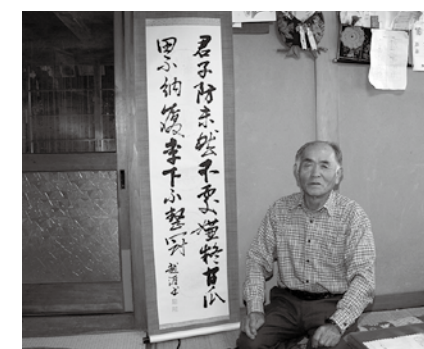 君子防未然不處嫌疑間瓜
田不納履李下不整冠